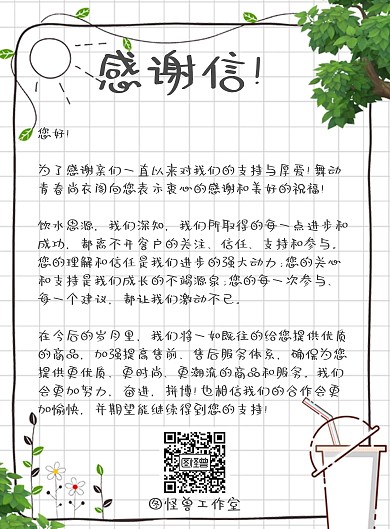 感谢信!
您好!
为了感谢亲们一直以来对我们的支持与厚爱!舞动
青春尚衣阁向您表示衷心的感谢和美好的祝福!
饮水思源，我们深知，我们所取得的每一点进步和
成功，都离不开客户的关注、信任、支持和参与。
您的理解和信任是我们进步的强大动力;您的关心
和支持是我们成长的不竭源泉;您的每一次参与、
每一个建议，都让我们激动不已。
在今后的岁月里，我们将一如既往的给您提供优质
的商品，加强提高售前、售后服务体系，确保为您
提供更优质、更时尚、更潮流的商品和服务。我们
会更加努力、奋进、拼搏!也相信我们的合作会更
加愉快，并期望能继续得到您的支持!
图怪兽
图怪兽工作室